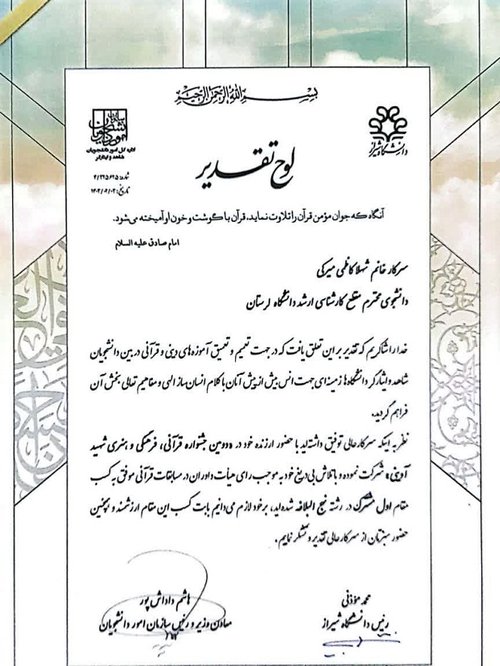 بسم الله الرحمن الرحیم
دانشگاه شیراز
سازمان امور دانشجویان
اداره کل امور دانشجویان
شاهد و ایثارگر
شماره: ۴/۲۲۵۶۲۵
لوح تقدیر
آنگاه که جوان مؤمن قرآن را تلاوت نماید، قرآن با گوشت و خون او آمیخته می‌شود.
امام صادق علیه السلام
سرکار خانم شهلا کاظمی میرکی
دانشجوی محترم مقطع کارشناسی ارشد دانشگاه لرستان
خدا را شاکریم که تقدیر بر این تعلق یافت که در جهت تعمیم و تعمیق آموزه‌های دینی و قرآنی در بین دانشجویان
شاهد و ایثارگر دانشگاه‌ها زمینه‌ای جهت انس بیش از پیش آنان با کلام انسان‌ساز الهی و مفاهیم تعالی بخش آن
فراهم گردید.
نظر به اینکه سرکار عالی توفیق داشته‌اید با حضور ارزنده خود در «دومین جشنواره قرآنی، فرهنگی و هنری شهید
آوینی» شرکت نموده و با تلاش بی‌دریغ خود به موجب رای هیأت داوران در مسابقات قرآنی موفق به کسب
مقام اول مشترک در رشته نهج البلاغه شده‌اید، بر خود لازم می‌دانیم بابت کسب این مقام ارزشمند و همچنین
حضور سبزتان از سرکار عالی تقدیر و تشکر نماییم.
محمد مؤذنی
رئیس دانشگاه شیراز
هاشم داداش پور
معاون وزیر و رئیس سازمان امور دانشجویان